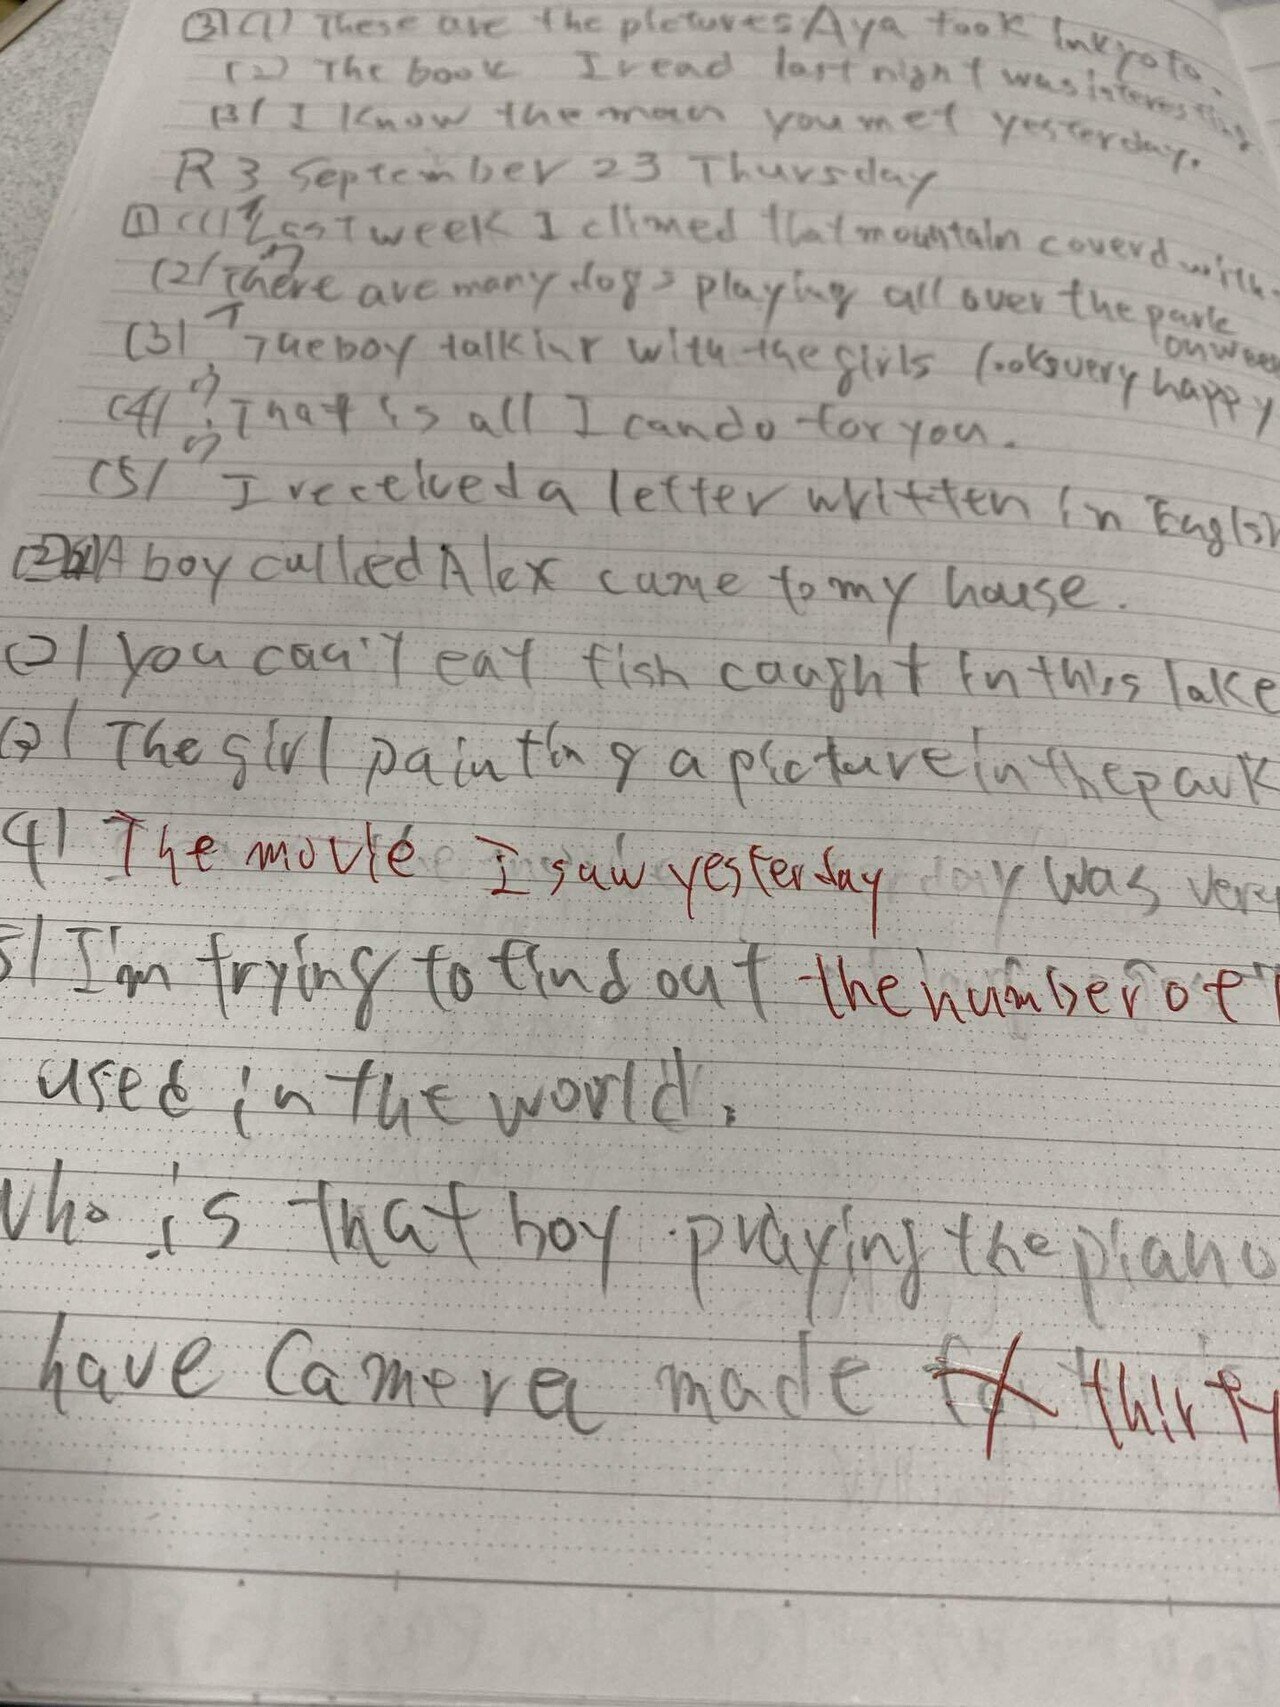 ③(1) These are the pictures Aya took in kyoto.
(2) The book I read last night was interesting
(3) I know the man you met yesterday.
R3 September 23 Thursday
① (1) Last week I climed that mountain coverd with
(2) There are many dogs playing all over the park
(3) The boy talking with the girls looks very happy
(4) ウ That is all I can do for you.
(5) ウ I received a letter written in English
② A boy called Alex came to my house.
(2) You can't eat fish caught in this lake
(3) The girl painting a picture in the park
4) The movie I saw yesterday was very
5) I'm trying to find out the number of
used in the world.
Who is that boy praying the piano
have Camera made thirty